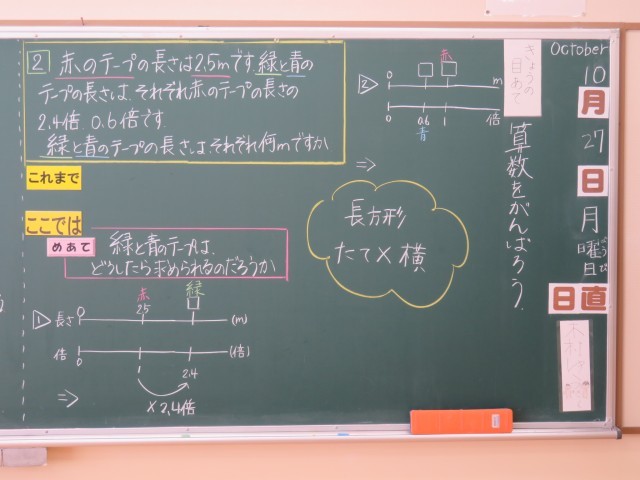 2 赤のテープの長さは2.5mです。緑と青の
テープの長さは、それぞれ赤のテープの長さの
2.4倍、0.6倍です。
緑と青のテープの長さは、それぞれ何mですか
これまで
ここでは
めあて
緑と青のテープは、
どうしたら求められるのだろうか
1
赤 緑
長さ 0 2.5 (m)
倍 0 1 2.4 (倍)
⇒
×2.4倍
2
赤
0 m
0.6 1 倍
青
⇒
長方形
たて×横
きょうの
日あて
算数をがんばろう。
October
10
月
27
日
月
曜日
日直